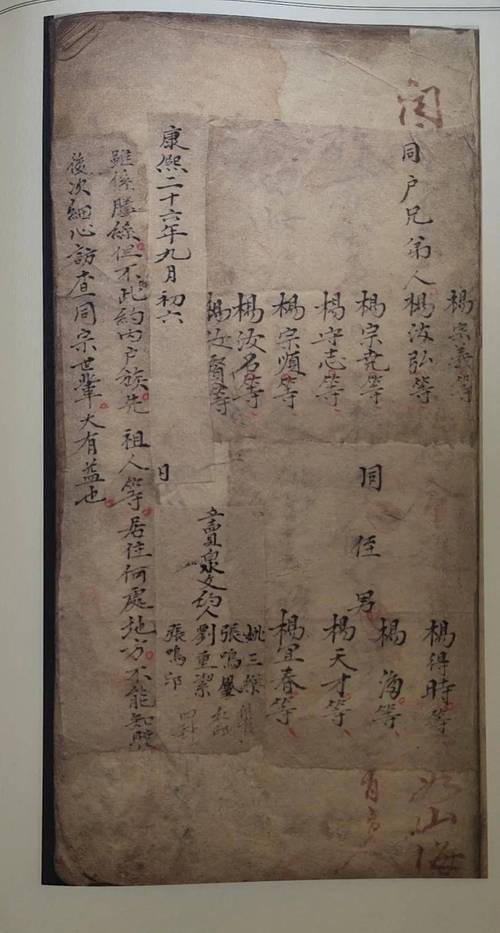 楊宗義等
同户兄弟人楊汝弘等
楊宗尭等
楊守志等
楊宗順等
楊汝名等
楊汝賢等
同侄男
楊得時等
楊海等
楊天才等
楊宜春等
賣泉文約人
張鳴鳳
劉重潔
張鳴邱
康熙二十六年九月初六日
雖係謄絲但不此約内户族先祖人等居住何處地方不能知
後次細心訪查同宗世輩大有益也